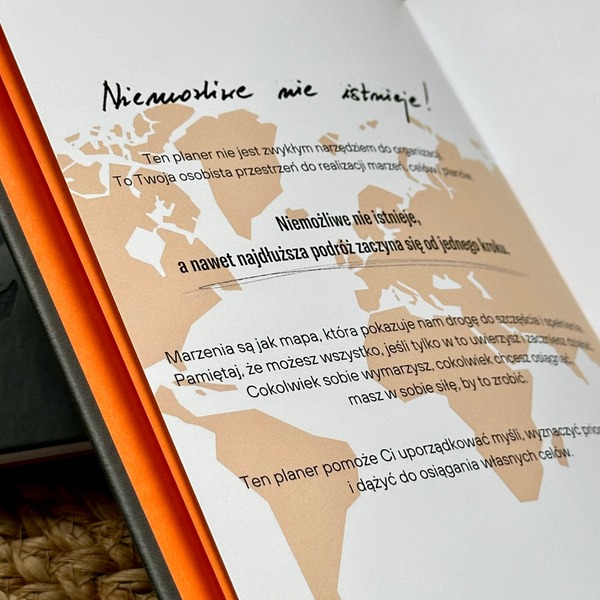 Niemożliwe nie istnieje!
Ten planer nie jest zwykłym narzędziem do organizacji.
To Twoja osobista przestrzeń do realizacji marzeń, celów i planów.
Niemożliwe nie istnieje,
a nawet najdłuższa podróż zaczyna się od jednego kroku.
Marzenia są jak mapa, która pokazuje nam drogę do szczęścia i spełnienia.
Pamiętaj, że możesz wszystko, jeśli tylko w to uwierzysz i zaczniesz działać.
Cokolwiek sobie wymarzysz, cokolwiek chcesz osiągnąć,
masz w sobie siłę, by to zrobić.
Ten planer pomoże Ci uporządkować myśli, wyznaczyć
i dążyć do osiągania własnych celów.